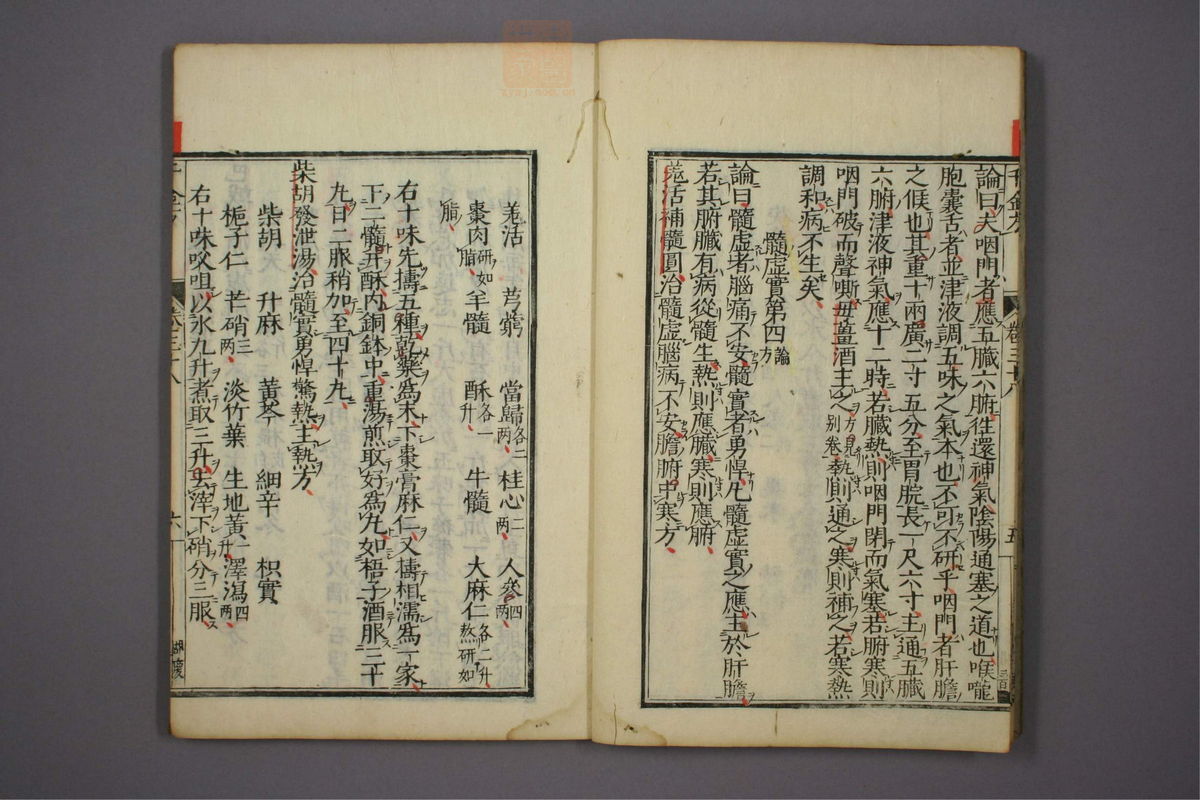 論曰夫咽門者應五臟六腑往還神氣陰陽通塞之道也喉嚨
胞囊舌者並津液調五味之氣本也不可不研乎咽門者肝膽
之候也其重十兩廣二寸五分至胃脘長一尺六寸主通五臟
六腑津液神氣應十二時若臟熱則咽門閉而氣塞若腑寒則
咽門破而聲嘶母薑酒主之方見別卷熱則通之寒則補之若寒熱
調和病不生矣
髓虛實第四論方
論曰髓虛者腦痛不安髓實者勇悍凡髓虛實之應主於肝膽
若其腑臟有病從髓生熱則應臟寒則應腑
羗活補髓圓治髓虛腦痛不安膽腑中寒方
五
羗活 芎藭 當歸各二两 桂心二两 人參四两
棗肉研如脂 羊髓 酥各一升 牛髓 大麻仁各二升熬研如
脂
右十味先擣五種乾藥為末下棗膏麻仁又擣相濡為一家
下二髓并酥内銅鉢中重湯煎取好為丸如梧子酒服三十
丸日二服稍加至四十丸
柴胡發泄湯治髓實勇悍驚熱主熱方
柴胡 升麻 黃芩 細辛 枳實
梔子仁 芒硝三两 淡竹葉 生地黃一升 澤瀉四两
右十味㕮咀以水九升煮取三升去滓下硝分三服
六